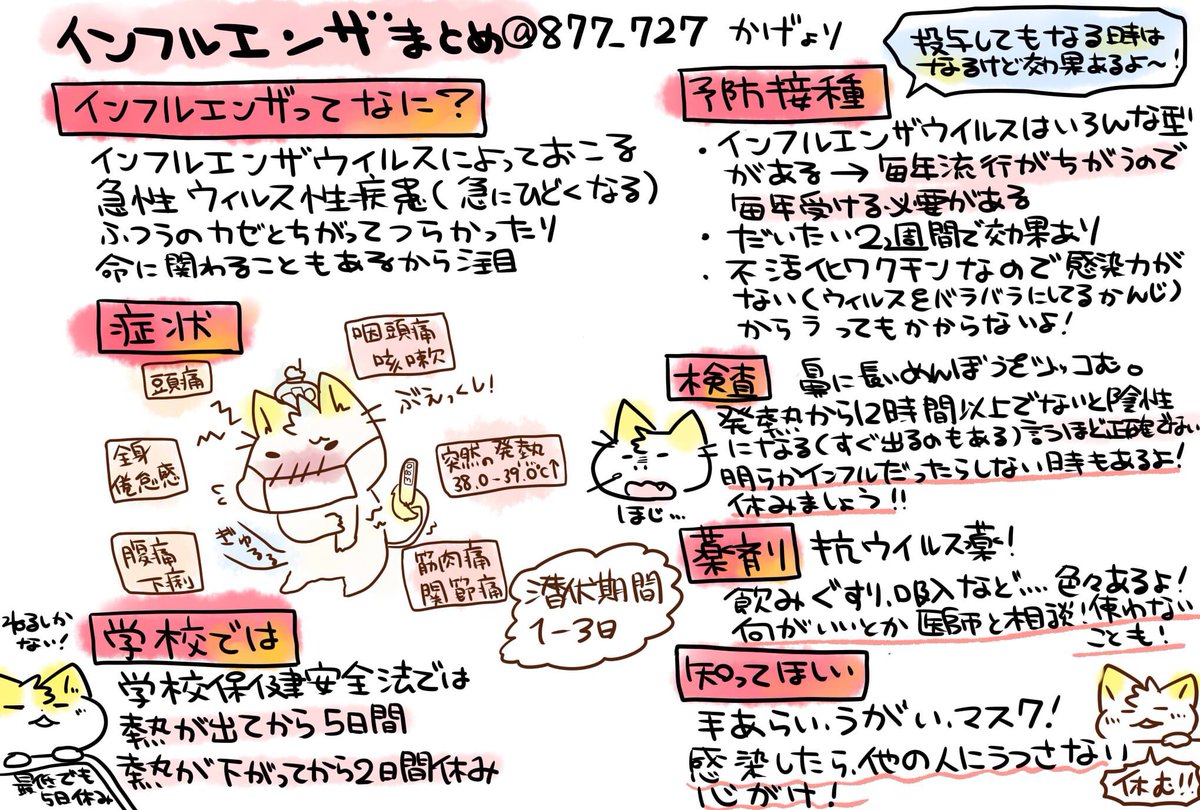 インフルエンザまとめ@877_727 かげより
インフルエンザってなに？
インフルエンザウイルスによっておこる
急性ウィルス性疾患(急にひどくなる)
ふつうのカゼとちがってつらかったり
命に関わることもあるから注目
症状
頭痛
咽頭痛
咳嗽
ぶえっくし!
全身
倦怠感
突然の発熱
38.0-39.0℃↑
腹痛
下痢
ぎゅるる
筋肉痛
関節痛
潜伏期間
1-3日
学校では
ねるしか
ない!
学校保健安全法では
熱が出てから5日間
熱が下がってから2日間休み
最低でも
5日休み
投与してもなる時は
なるけど効果あるよ〜!
予防接種
・インフルエンザウイルスはいろんな型
がある→毎年流行がちがうので
毎年受ける必要がある
・だいたい2週間で効果あり
・不活化ワクチンなので感染力が
ない(ウィルスをバラバラにしてるかんじ)
からうってもかからないよ!
検査 鼻に長いめんぼうをツッコむ。
発熱から12時間以上でないと陰性
になる(すぐ出るのもある)言うほど正確でない
明らかインフルだったらしない時もあるよ!
休みましょう!!
ほじ…
薬剤 抗ウイルス薬!
飲みぐすり、吸入など…. 色々あるよ!
何がいいとか医師と相談!使わない
ことも!
知ってほしい
手あらい、うがい、マスク!
感染したら、他の人にうつさない
心がけ!
休む!!